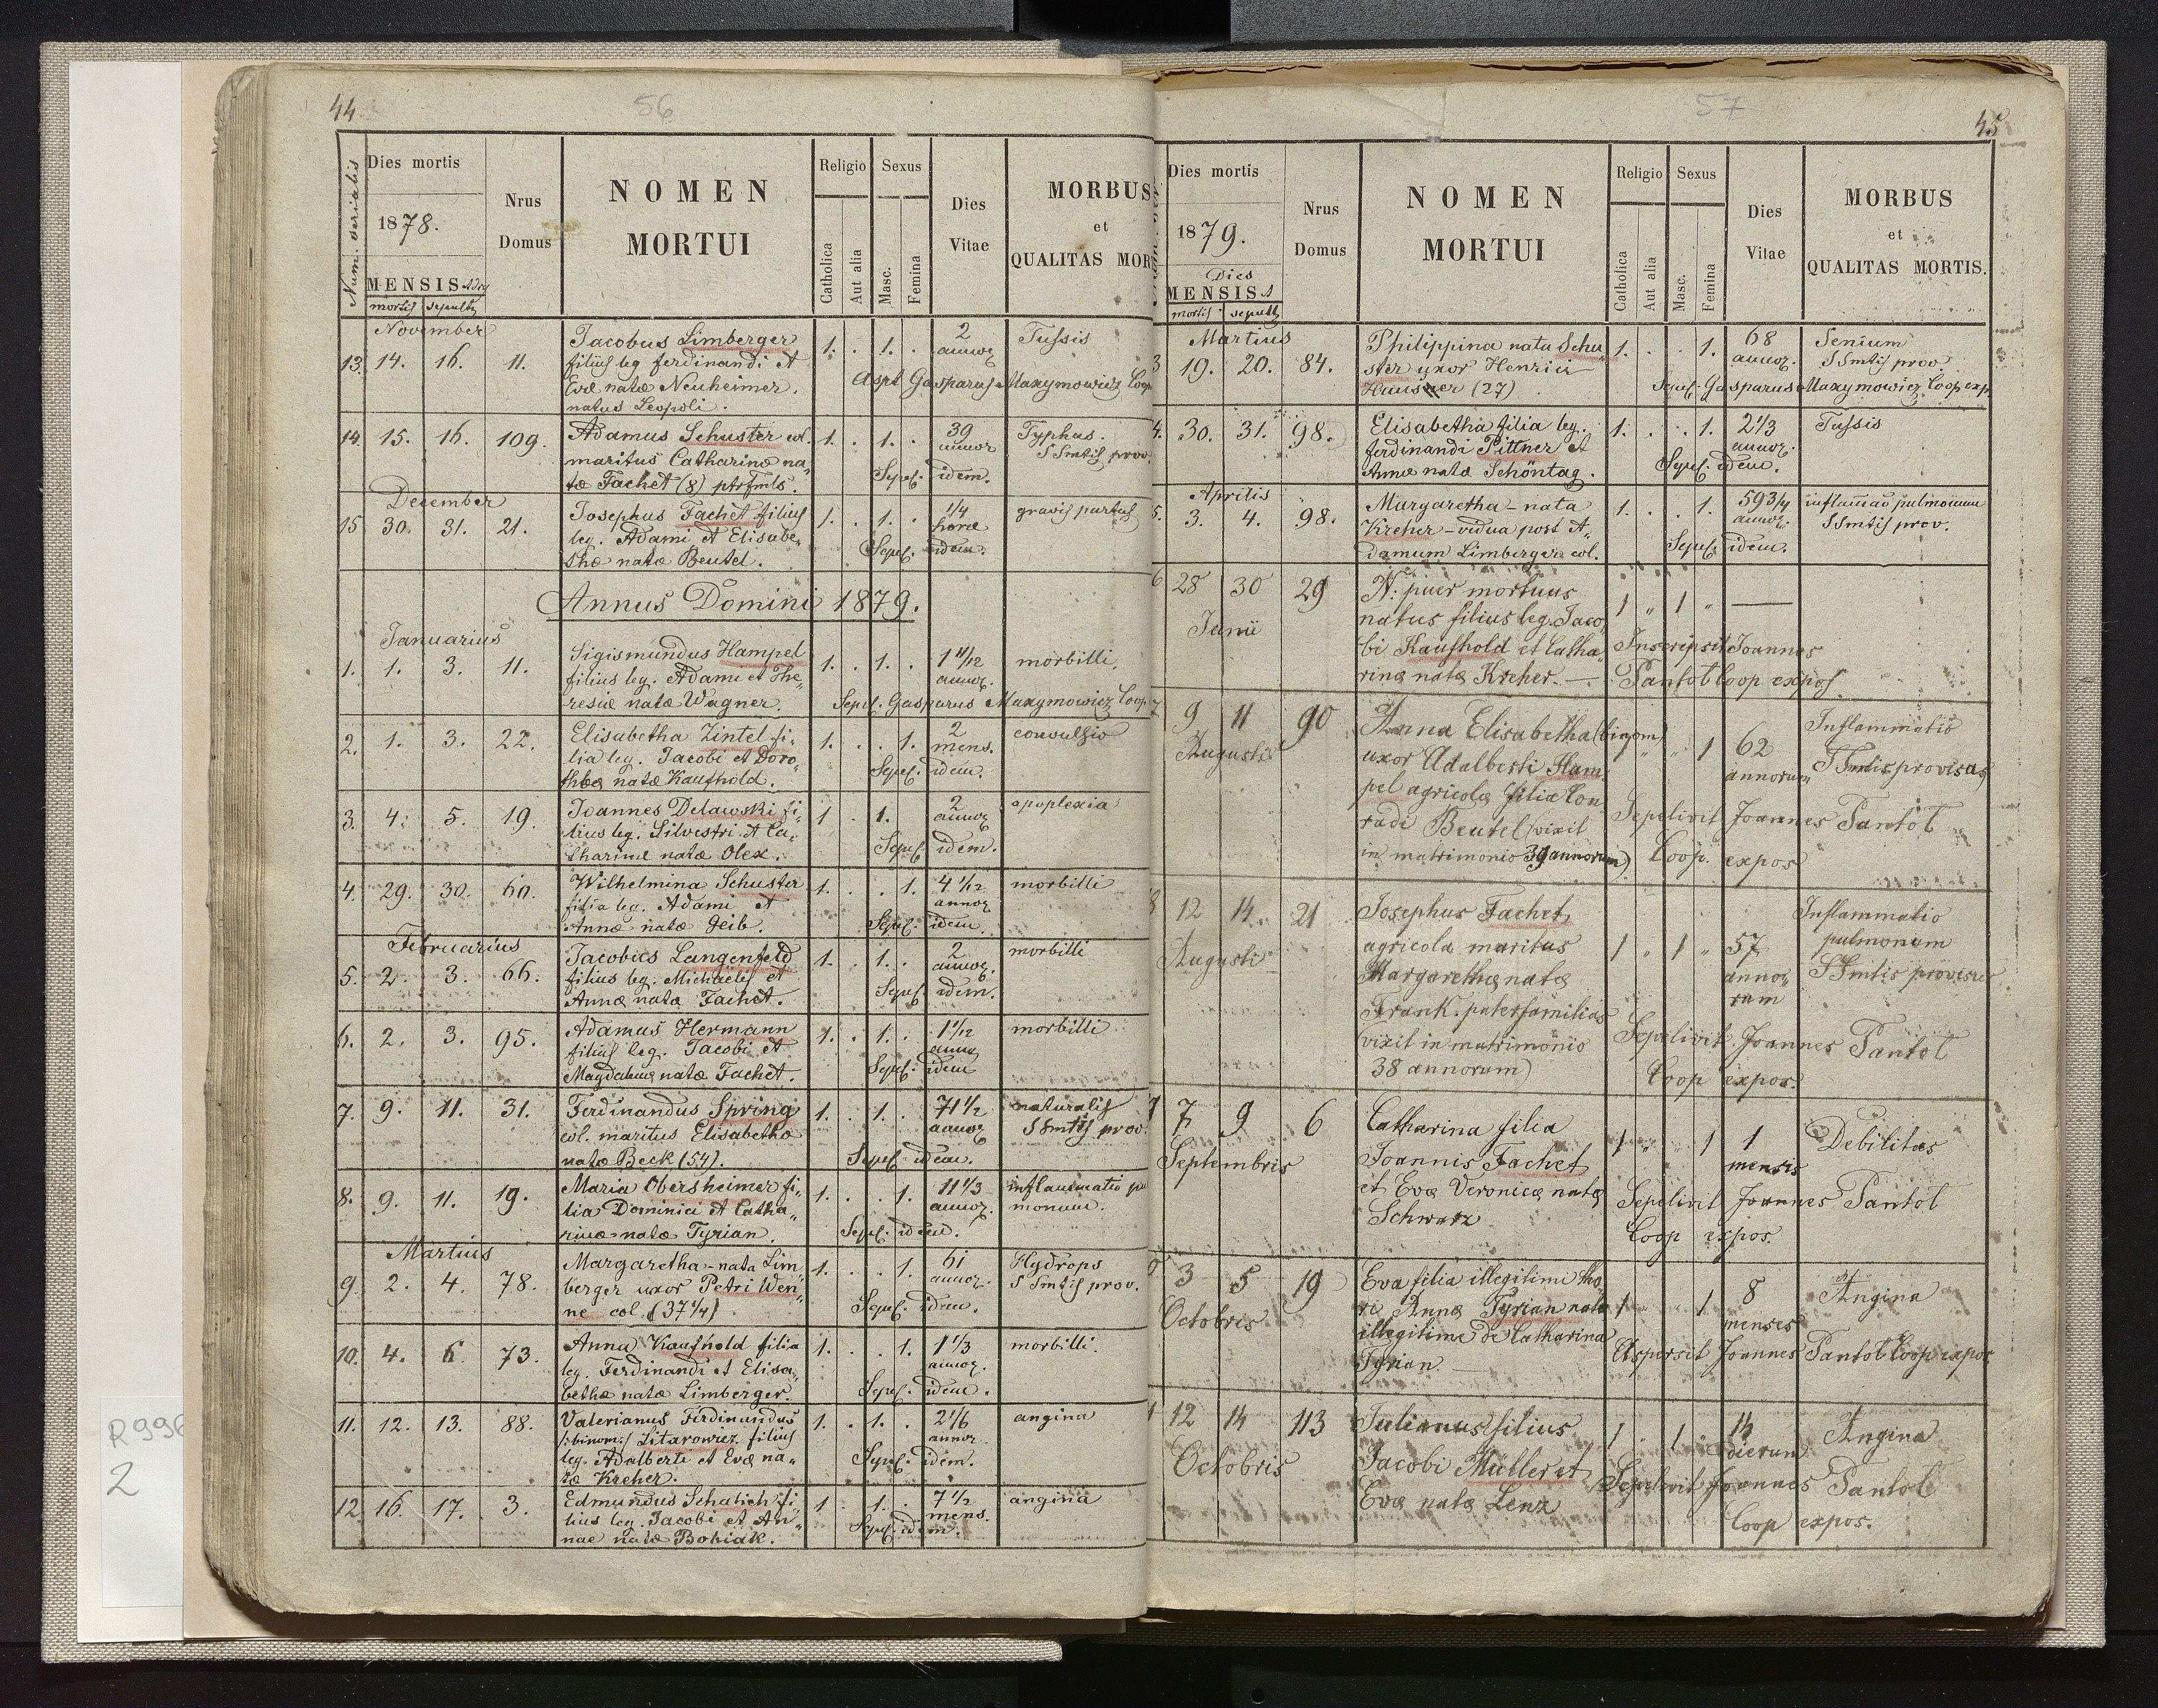 44
56
Num. serialis
Dies mortis
1878.
MENSIS
mortis sepult
Nrus Domus
NOMEN MORTUI
Religio
Catholica
Aut alia
Sexus
Masc.
Femina
Dies Vitae
MORBUS
et
QUALITAS MOR
November
13. 14. 16. 11. Jacobus Limberger 1. . 1. . 2 Tussis
filius leg ferdinandi et annor
Evæ natæ Neuheimer. Gasparus Maxymowicz Coop
natus Leopoli.
14. 15. 16. 109. Adamus Schuster col. 1. . 1. . 39 Typhus.
maritus Catharinæ na„ annor SSmtis prov.
tæ Fachet (8) ptrfmls. Sepel. idem.
December
15 30. 31. 21. Josephus Fachet filius 1. . 1. . 1/4 gravis partus
leg. Adami et Elisabe„ horæ
thæ natæ Beutel. Sepel. idem.
Annus Domini 1879.
Januarius
1. 1. 3. 11. Sigismundus Hampel 1. . 1. . 1 11/12 morbilli
filius leg. Adami et The„ annor.
resiæ natæ Wagner. Sepel. Gasparus Maxymowicz Coop
2. 1. 3. 22. Elisabetha Zintel fi„ 1. . . 1. 2 convulsio
lia leg. Jacobi et Doro„ mens.
theæ natæ Kaufhold. Sepel. idem.
3. 4. 5. 19. Joannes Delawski fi„ 1 . 1. 2 apoplexia
lius leg. Silvestri et Ca„ annor
tharinæ natæ Olex. Sepel. idem.
4. 29. 30. 60. Wilhelmina Schuster 1. . . 1. 4 1/12 morbilli
filia leg. Adami et annor
Annæ natæ Geib. Sepel. idem.
Februarius
5. 2. 3. 66. Jacobus Langenfeld 1. . 1. . 2 morbilli
filius leg. Michaelis et annor.
Annæ natæ Fachet. Sepel. idem.
6. 2. 3. 95. Adamus Hermann 1. . 1. . 1 1/12 morbilli
filius leg. Jacobi et
Magdalenæ natæ Fachet. Sepel. idem
7. 9. 11. 31. Ferdinandus Spring 1. . 1. . 71 1/2 naturalis
col. maritus Elisabethæ annor SSmtis prov.
natæ Beck (54). Sepel. idem.
8. 9. 11. 19. Maria Obersheimer fi„ 1. . . 1. 11 1/3 inflammatio pu
lia Dominici et Catha„ annor. monum.
rinæ natæ Tyrian. Sepel. idem.
Martius
9. 2. 4. 78. Margaretha – nata Lim 1. . . 1. 61 Hydrops
berger uxor Petri Wen„ annor. SSmtis prov.
ne col. (37 1/4) Sepel. idem.
10. 4. 6. 73. Anna Kaufhold filia 1. . . 1. 1 1/3 morbilli.
leg. Ferdinandi et Elisa„ annor.
bethæ natæ Limberger. Sepel. idem.
11. 12. 13. 88. Valerianus Ferdinandus 1. . 1. . 2 1/6 angina
/:binom:/ Litarowicz filius annor
leg. Adalberti et Evæ na„ Sepel. idem.
tæ Kreher.
12. 16. 17. 3. Edmundus Schalich fi„ 1. . 1. . 7 1/2 angina
lius leg. Jacobi et An„ mens.
nae natæ Bobiak. Sepel. idem.
45
57
Dies mortis
1879.
Dies
MENSIS
mortis sepult
Nrus Domus
NOMEN MORTUI
Religio
Catholica
Aut alia
Sexus
Masc.
Femina
Dies Vitae
MORBUS
et
QUALITAS MORTIS.
Martius
3 19. 20. 84. Philippina nata Schu„ 1. . . 1. 68 Senium
ster uxor Henrici annor. SSmtis prov.
(27) Sepel. Gasparus Maxymowicz Coop. exp.
4. 30. 31. 98. Elisabetha filia leg. 1. . . 1. 2 1/3 Tussis
ferdinandi Pittner et annor.
Annæ natæ Schöntag. Sepel. idem.
Aprilis
5. 3. 4. 98. Margaretha – nata 1. . . 1. 59 3/4 inflamão pulmonum
Kreher – vidua post A„ annor. SSmtis prov.
damum Limberger col. Sepel. idem.
6 28 30 29 N: puer mortuus 1 „ 1 „ —
Junii natus filius leg. Jaco„
bi Kaufhold et Catha„ Inscripsit Joannes
rinæ natæ Kreher. — Pantol Coop expos.
7 9 11 90 Anna Elisabetha (binom) 1 „ „ 1 62 Inflammatio
Augusti uxor Adalberti Ham„ annorum SSmtis provisa
pel agricolæ filia Con
radi Beutel (vixit Sepelivit Joannes Pantol
in matrimonio 39 annorum) Coop. expos
8 12 14 21 Josephus Fachet 1 „ 1 „ 57 Inflammatio
Augusti agricola maritus anno„ pulmonum
Margarethæ natæ rum SSmtis provisus
Frank. paterfamilias
(vixit in matrimonio Sepelivit Joannes Pantol
38 annorum) Coop expos.
7 9 6 Catharina filia 1 „ „ 1 1 Debilitas
Septembris Joannis Fachet mensis
et Evæ Veronicæ natæ Sepelivit Joannes Pantol
Schwarz Coop expos.
3 5 19 Eva filia illegitimi tho„ 1 „ „ 1 8 Angina
Octobris ri Annæ Tyrian natæ menses
illegitime de Catharina Aspersit Joannes Pantol Coop expos
Tyrian. —
12 14 113 Julianus filius 1 . 1 „ 14 Angina
Octobris Jacobi Müller et dierum
Evæ natæ Lenz Sepelivit Joannes Pantol
Coop expos.
R996
2